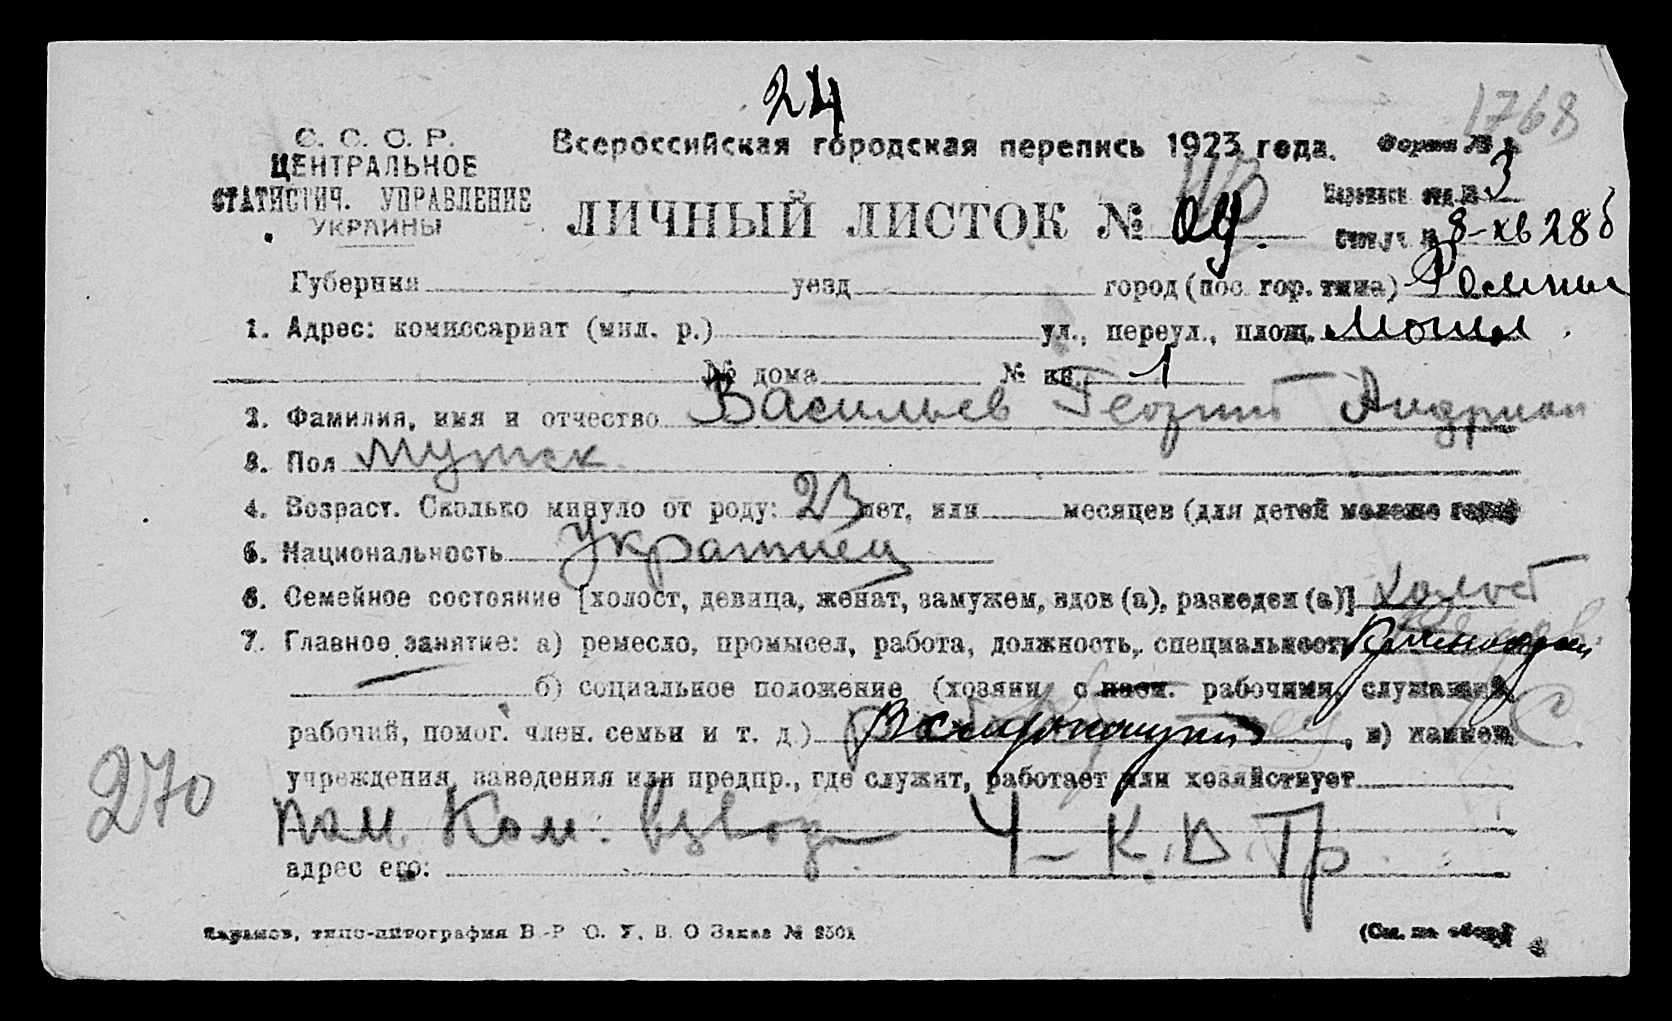 24
1768
С. С. С. Р.
ЦЕНТРАЛЬНОЕ
СТАТИСТИЧ. УПРАВЛЕНИЕ
УКРАИНЫ
Всероссийская городская перепись 1923 года.
Форма №
3
ЛИЧНЫЙ ЛИСТОК №
8-кв 28б
Губерния уезд город (пос. гор. типа) Ромны
1. Адрес: комиссариат (мил. р.) ул., переул., площ.
№ дома № кв. 1
2. Фамилия, имя и отчество Васильев Георгий Андриан
3. Пол мужск
4. Возраст. Сколько минуло от роду: 23 лет, или месяцев (для детей моложе года)
5. Национальность Украинец
6. Семейное состояние [холост, девица, женат, замужем, вдов (а), разведен (а)] холост
7. Главное занятие: а) ремесло, промысел, работа, должность, специальность
б) социальное положение (хозяин с наем. рабочими, служащий,
рабочий, помог. член. семьи и т. д.) , в) наимен.
учреждения, заведения или предпр., где служит, работает или хозяйствует
270
пом. Ком. взвода 4 - К. Д. Тр
адрес его:
Харьков, типо-литография В. Р. О. У. В. О Заказ № 2501
(См. на обор.)